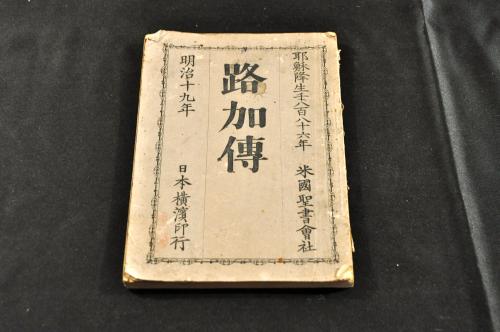 耶穌降生千八百八十六年 米國聖書會社
路加傳
明治十九年 日本橫濱印行